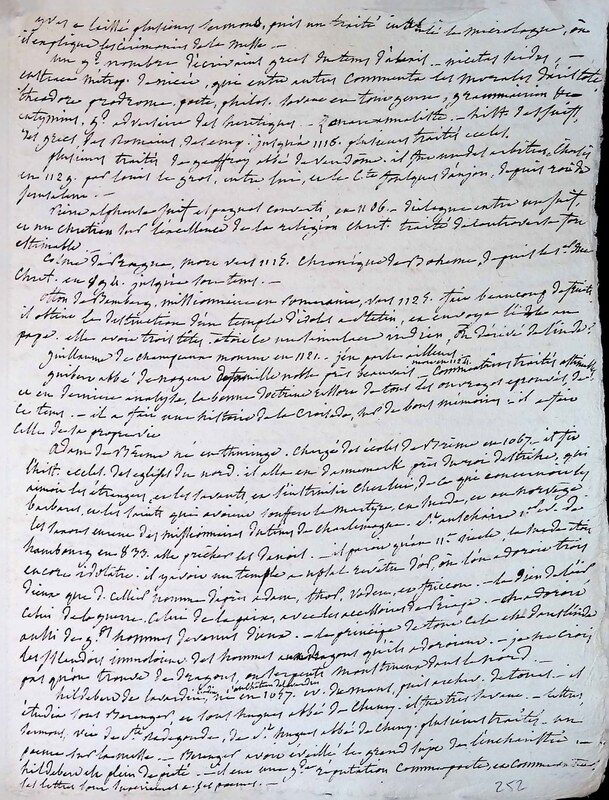 yves a laissé plusieurs sermons, puis un traité intitulé le micrologue, où
il explique les cérémonies de la messe —
un gd nombre d'écrivains grecs du tems d'alexis — nicetas seidus, —
eustrate métrop. de nicée, qui entre autres commenta les morales d'aristote
theodore prodrome, poete, philos. savant en tout genre, grammairien
entymius, gd adversaire des heretiques. — Zonare annaliste. — hist. des juifs,
des grecs, des Romains, des emp. jusqu'à 1118. plusieurs traités eccles.
plusieurs traités de geoffroy abbé de Vendôme. il fut un des arbitres, choisis
en 1129. par louis le gros, entre lui, et le Cte foulques d'anjou, depuis roi de
Jerusalem.
Pierre alphonse juif espagnol converti, en 1106. — dialogue entre un juif,
et un chretien sur l'excellence de la religion chret. traité de controverse fort
estimable —
Cosme de Prague, mort vers 1125. Chronique de Boheme, depuis le 1er duc
Chret. en 894. jusqu'à son tems. —
Otton de Bamberg, missionnaire en Pomeranie, vers 1125. fait beaucoup de fruit,
il obtint la destruction d'un temple d'idoles a stetin, et envoya l'idole au
pape. elle avoit trois têtes. étoit ce un simulacre indien, ou dérivé de l'inde?
guillaume de champeaux mourut en 1121. — j'en parle ailleurs
guibert abbé de nogent de famille noble près beauvais — mort en 1124. Commentaires traités estimables
et en derniere analyse, la bonne doctrine est lors de tous les ouvrages éprouvés, de
ce tems. — il a fait une histoire de la Croisade, sur de bons mémoires : il a fait
celle de sa propre vie
adam de Brême né en thuringe. chargé des écoles de Brême en 1067. — il fit
l'hist. eccles. des eglises du nord. il alla en dannemark près du roi d'estrithe, qui
aimoit les étrangers, et les savants, et s'instruisit chez lui, de ce que concernoit les
barbares, et les saints qui avoient souffert le martyre, en suede, et en norvege
les saxons eurent des missionnaires du tems de Charlemagne. — St anschaire, 1er ev. de
hambourg en 833. alla prêcher les danois. — il paroit qu'en 11e siecle, la suede étoit
encore idolatre. il y avoit un temple a upsal revêtu d'or, où l'on adoroit trois
dieux que d. cellier nomme d'après adam, thor, voden, et friccon. — le dieu de l'air
celui de la guerre. celui de la paix, avec les accessoires d'usage — on adoroit
aussi de gds hommes devenus dieux. — le principe de tout cela est dans l'inde
les Islandois immoloient des hommes aux dragons qu'ils adoroient. — je ne crois
pas qu'on trouve de dragons, ou serpents monstrueux dans le nord
hildebert de lavardin, né en 1057. ev. du mans, puis archev. de tours. — il
étudia sous Berenger, et sous hugues abbé de Cluny. il fut très savant. — lettres,
sermons, vie de Ste Radegonde, de St hugues abbé de Cluny, plusieurs traités. — un
poeme sur la messe. — Berenger avoit éveillé le grand sujet de l'eucharistie —
hildebert est plein de piété. — il eut une gde réputation comme poete, et comme
ses lettres sont superieures a ses poemes. —
252